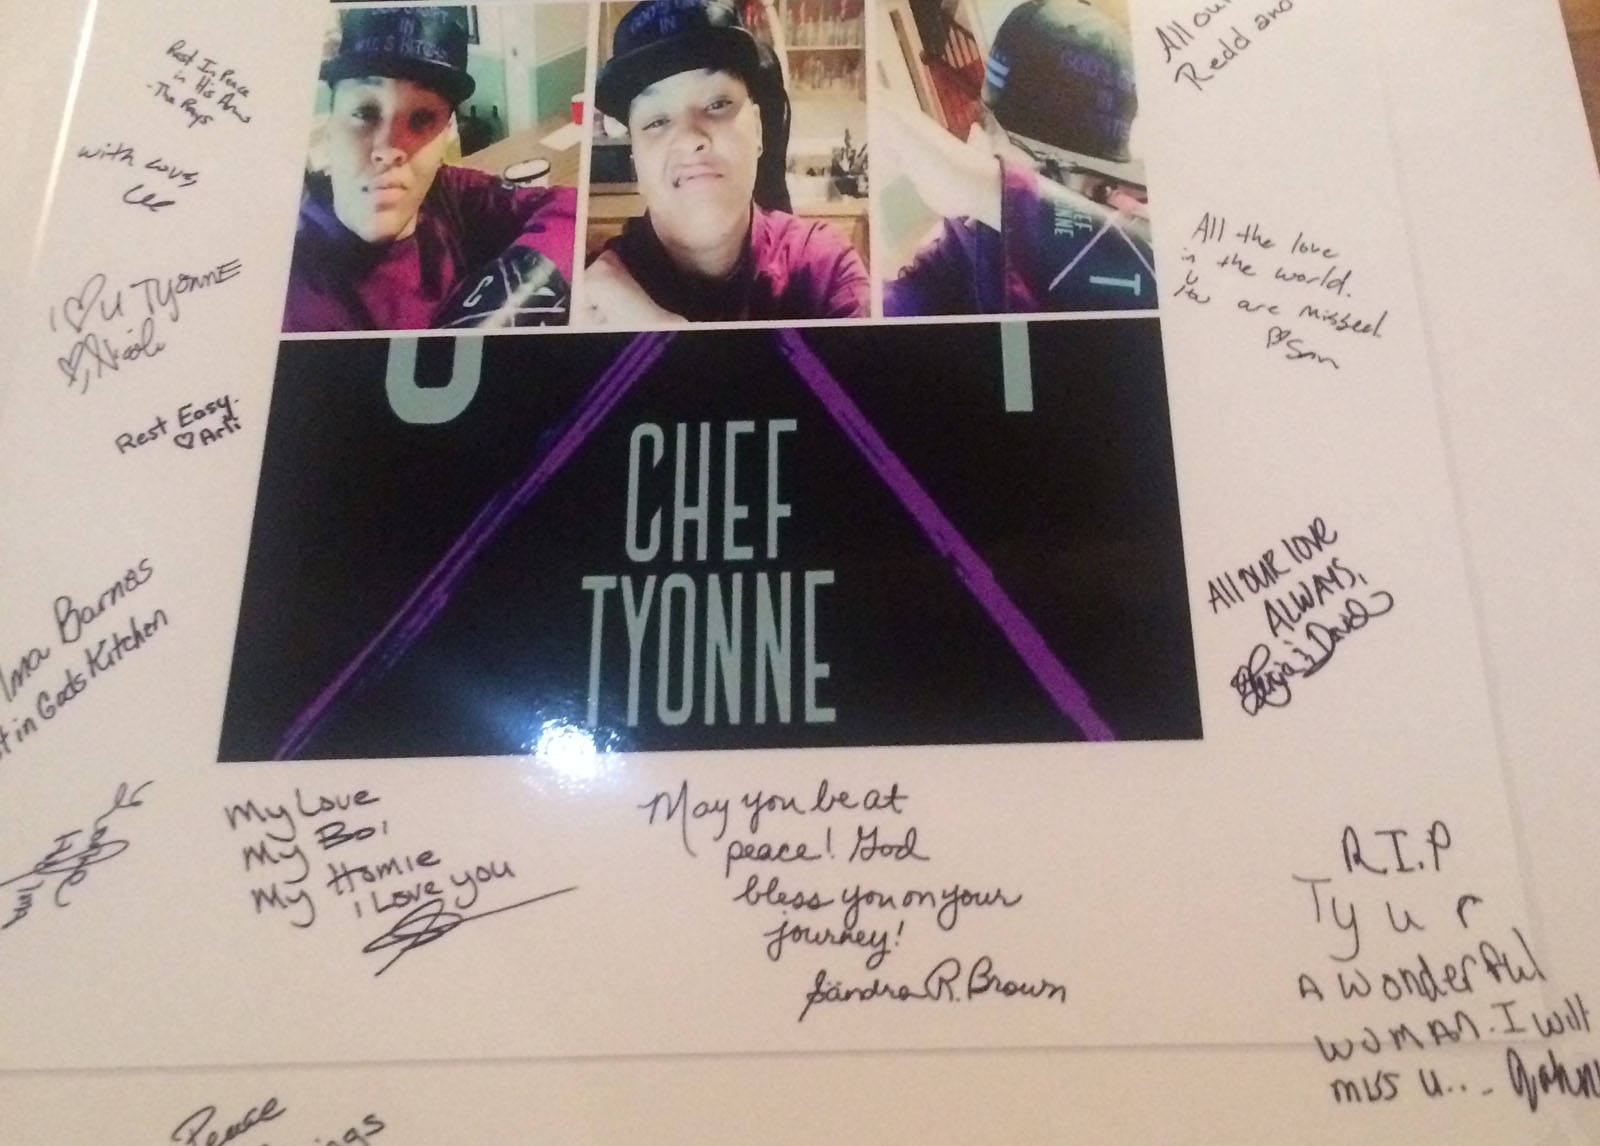 All our
Redd and
Rest In Peace
in His Arms
-The Rays
with love,
Lee
I ♡ U TYONNE
♡, Nicole
Rest Easy.
♡ Arti
IN
GOD'S
IN
IN
CHEF
TYONNE
C
T
All the love
in the world.
You are missed.
♡ Sam
CHEF
TYONNE
All OUR lOVE
ALWAYS,
& David
Barnes
in Gods Kitchen
My Love
My Boi
My Homie
I Love you
May you be at
peace! God
bless you on your
journey!
Sandra R. Brown
R.I.P
Ty u r
A wonderful
woman. I will
miss u...
Peace